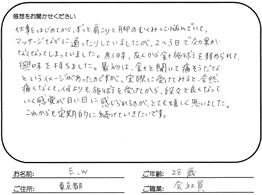 感想をお聞かせください
仕事をはじめてから、ずっと肩こりと脚のむくみに悩んでいて、
マッサージなどに通ったりしていましたが、2〜3日で効果が
なくなってしまっていました。ある日、友人から金十施術を勧められて、
興味を持ちました。最初は、金十と聞いて痛そうだな
というイメージがあったのですが、実際に受けてみると全然
痛くなくて、何よりも施術を受けてから、段々と良くなって
いく感覚が日に日に感じられるのが、とても嬉しく思いました。
これからも定期的に続けていきたいです。
お名前: E.W
ご年齢: 28 歳
ご住所: 東京都
ご職業: 会社員